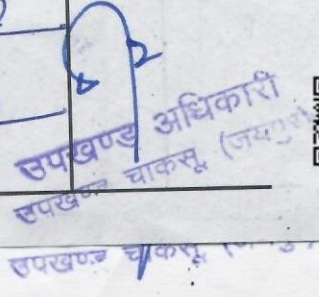 उपखण्ड अधिकारी
उपखण्ड चाकसू (जयपुर)
उपखण्ड चाकसू